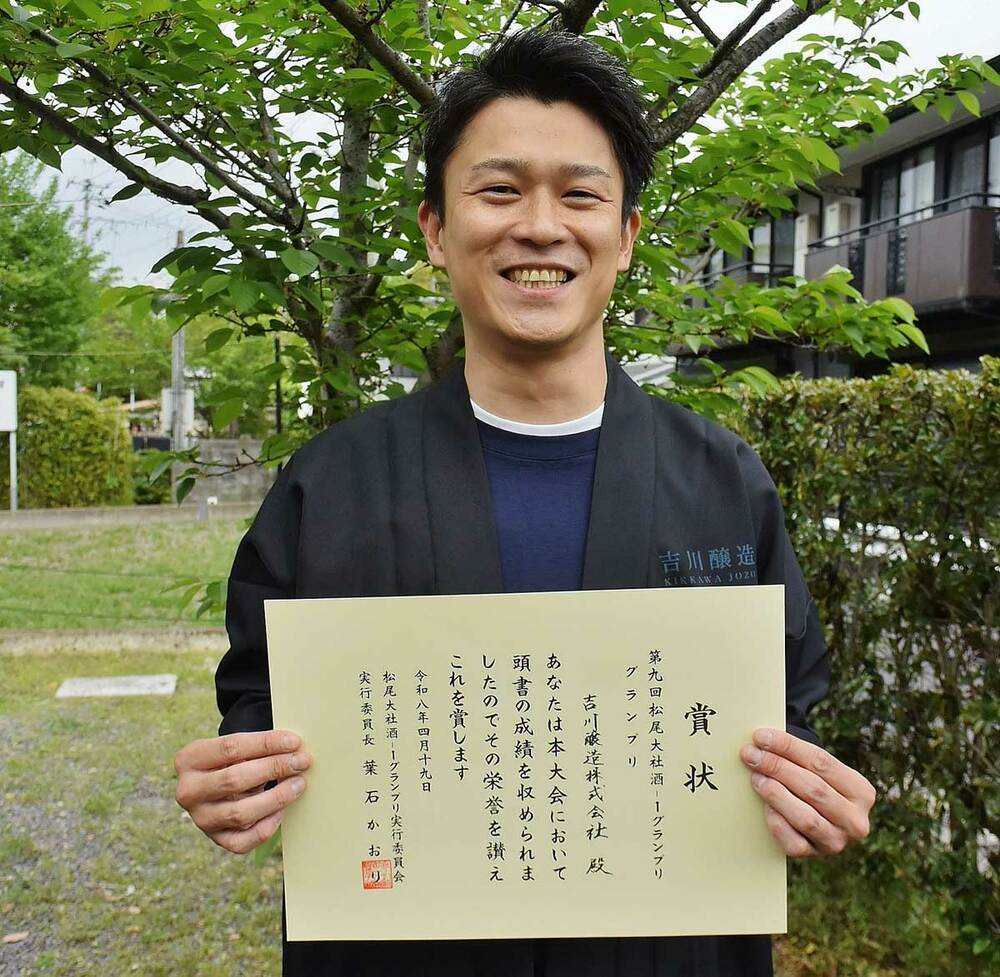 吉川醸造
KIKKAWA JOZO
賞状
第九回松尾大社酒-1グランプリ
グランプリ
吉川醸造株式会社 殿
あなたは本大会において
頭書の成績を収められま
したのでその栄誉を讃え
これを賞します
令和八年四月十九日
松尾大社酒-1グランプリ実行委員会
実行委員長 葉石かおり